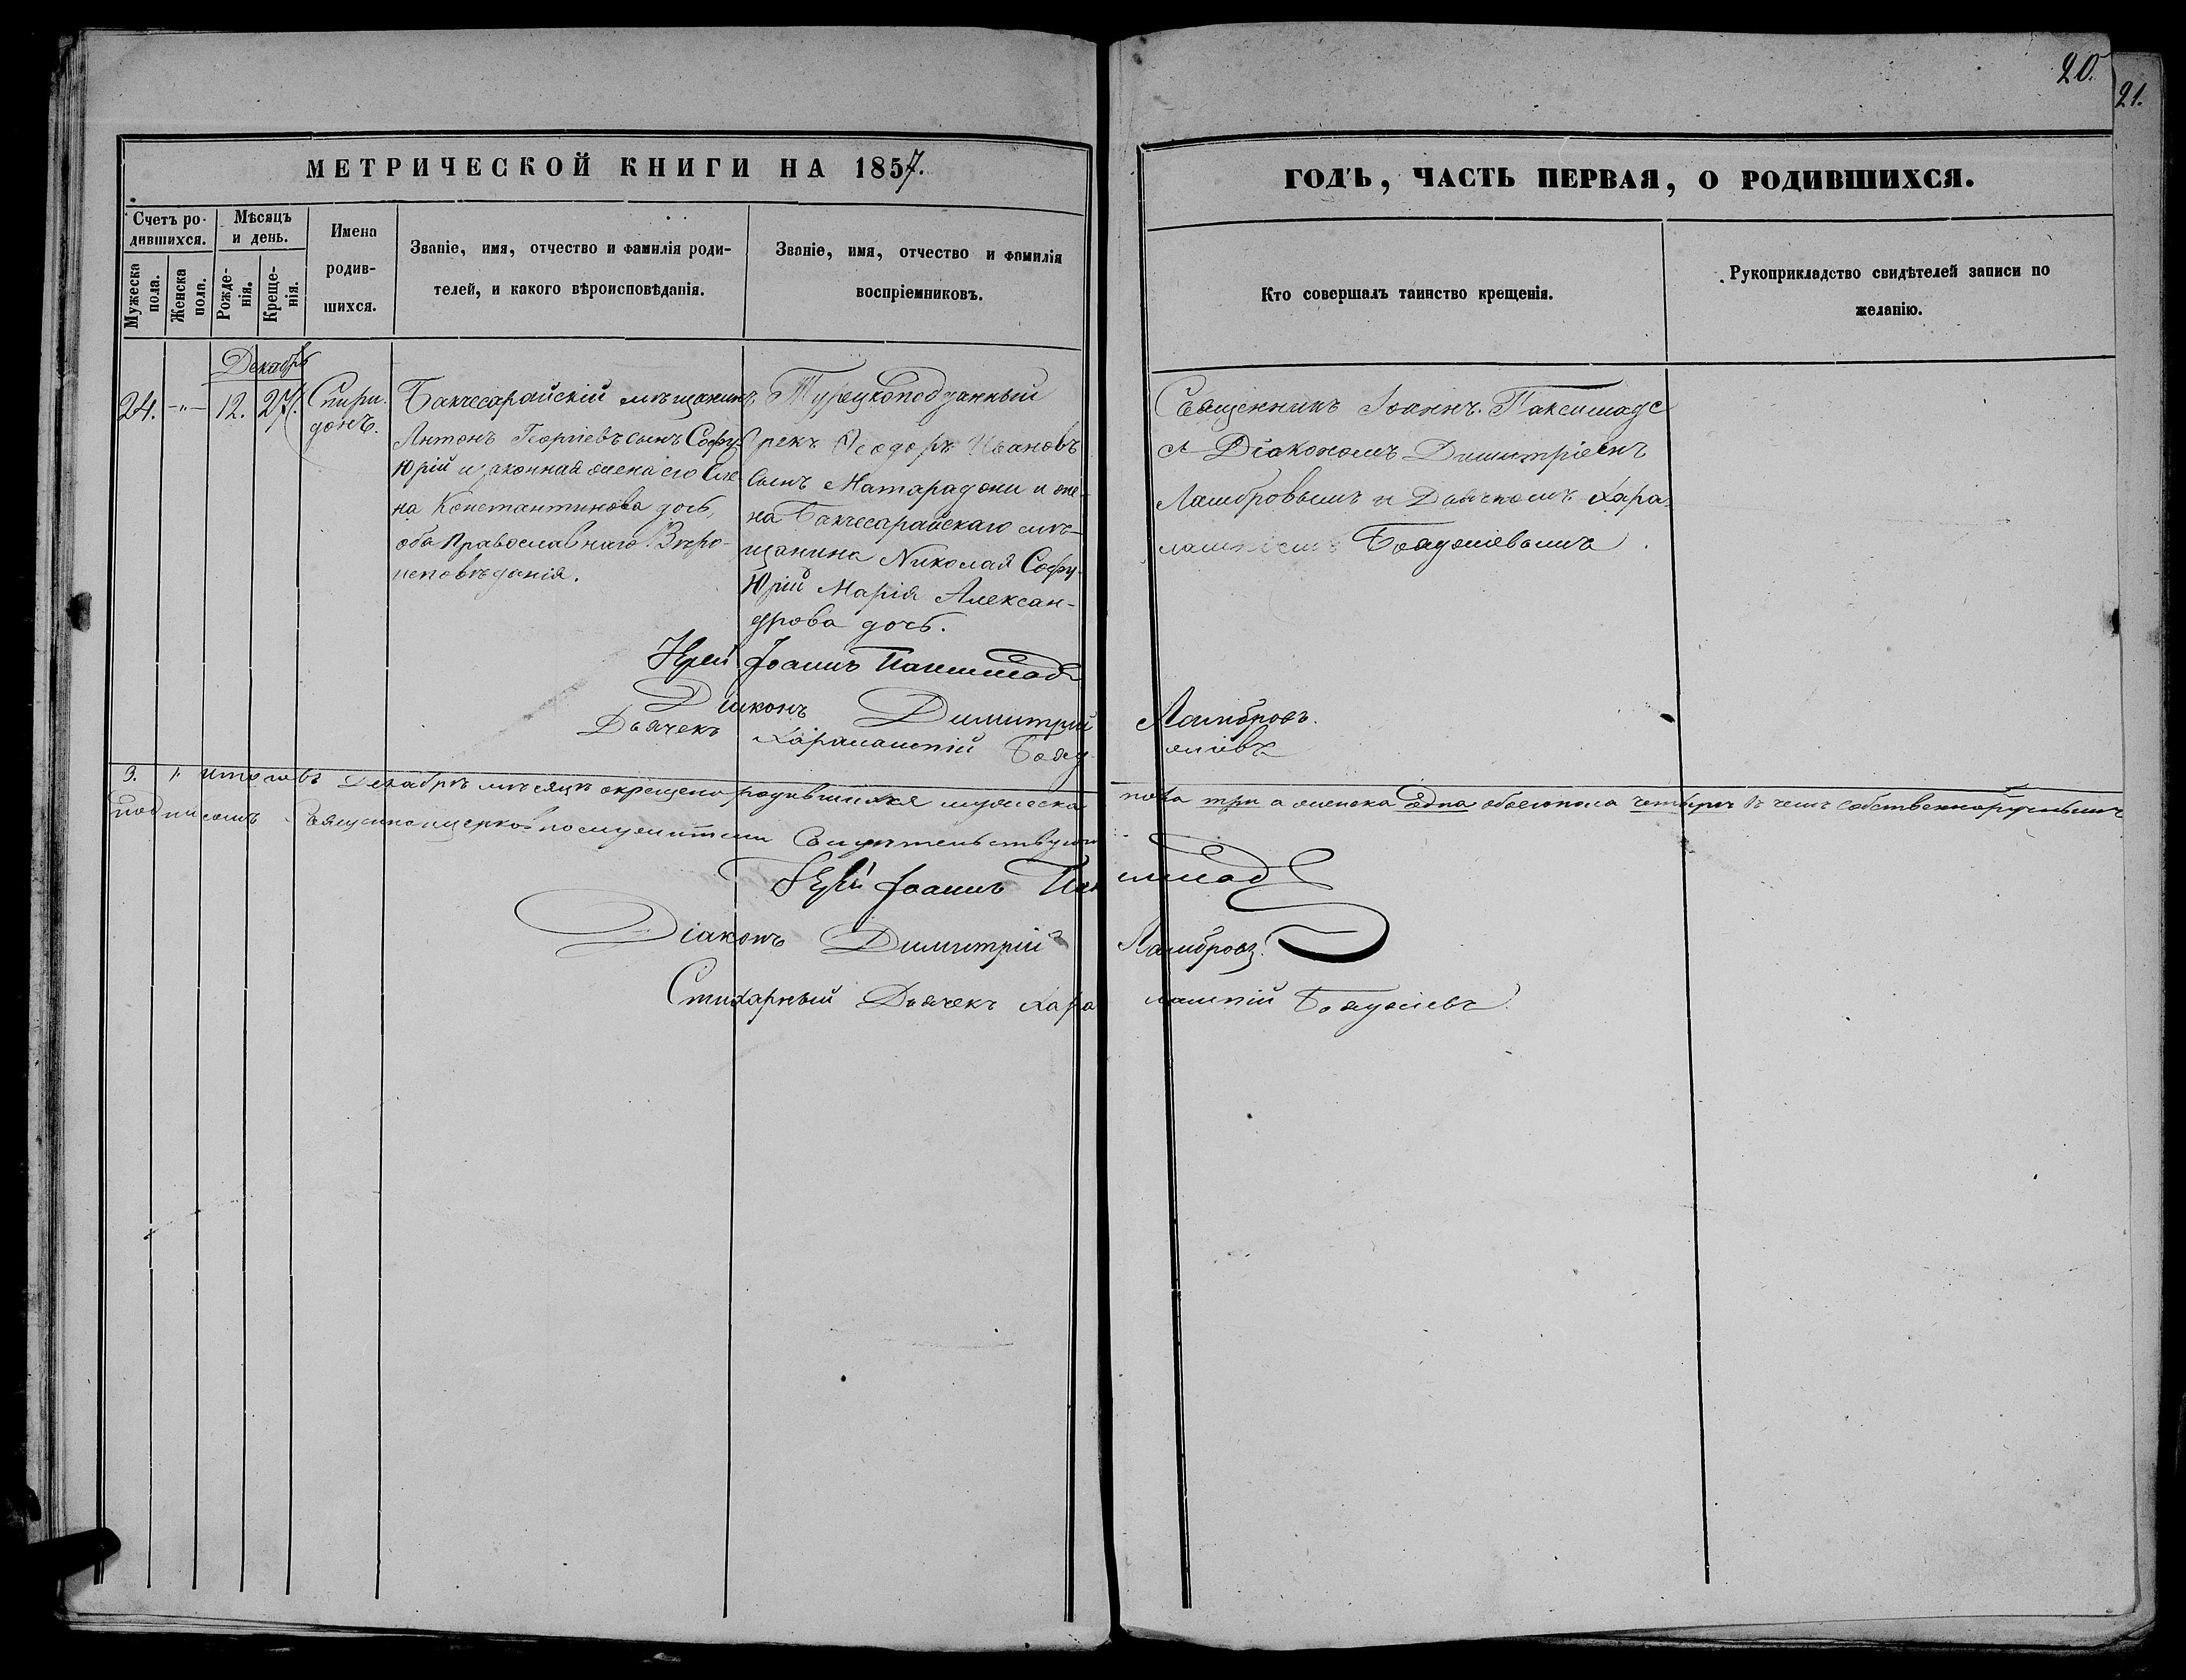 20.
21.
МЕТРИЧЕСКОЙ КНИГИ НА 1857.
ГОДЪ, ЧАСТЬ ПЕРВАЯ, О РОДИВШИХСЯ.
Счетъ ро-
дившихся.
Мужеска
пола.
Женска
пола.
Мѣсяцъ
и день.
Рожде-
нія.
Креще-
нія.
Имена
родив-
шихся.
Званіе, имя, отчество и фамилія роди-
телей, и какого вѣроисповѣданія.
Званіе, имя, отчество и фамилія
воспріемниковъ.
Кто совершалъ таинство крещенія.
Рукоприкладство свидѣтелей записи по
желанію.
Декабрь
24. -"- 12. 27.
Спири-
донъ.
Бакчесарайскій мѣщанинъ
Антонъ Георгіевъ сынъ Софу
Юрій и законная жена его Еле-
на Константинова дочь,
оба Православнаго Вѣро-
исповѣданія.
Турецкоподданный
Грекъ Ѳеодоръ Ивановъ
сынъ Матарадони и же-
на Бакчесарайскаго мѣ-
щанина Николая Софу-
Юрій Марія Алексан-
дрова дочь.
Священникъ Іоаннъ Паксимаде
съ Діакономъ Димитріемъ
Ламбровымъ и Дьячкомъ Хара-
лампіемъ Бояджіевымъ.
Іерей Іоаннъ Паксимаде
Діаконъ Димитрій Ламбровъ.
Дьячекъ Харалампій Бояджіевъ
3. 1. Итого въ Декабрѣ мѣсяцѣ окрещено родившихся мужеска пола три а женска одна обоего пола четыре въ чемъ собственноручнымъ
подписомъ Священноцерковнослужители Свидѣтельствуютъ
Іерей Іоаннъ Паксимаде
Діаконъ Димитрій Ламбровъ.
Стихарный Дьячекъ Харалампій Бояджіевъ.